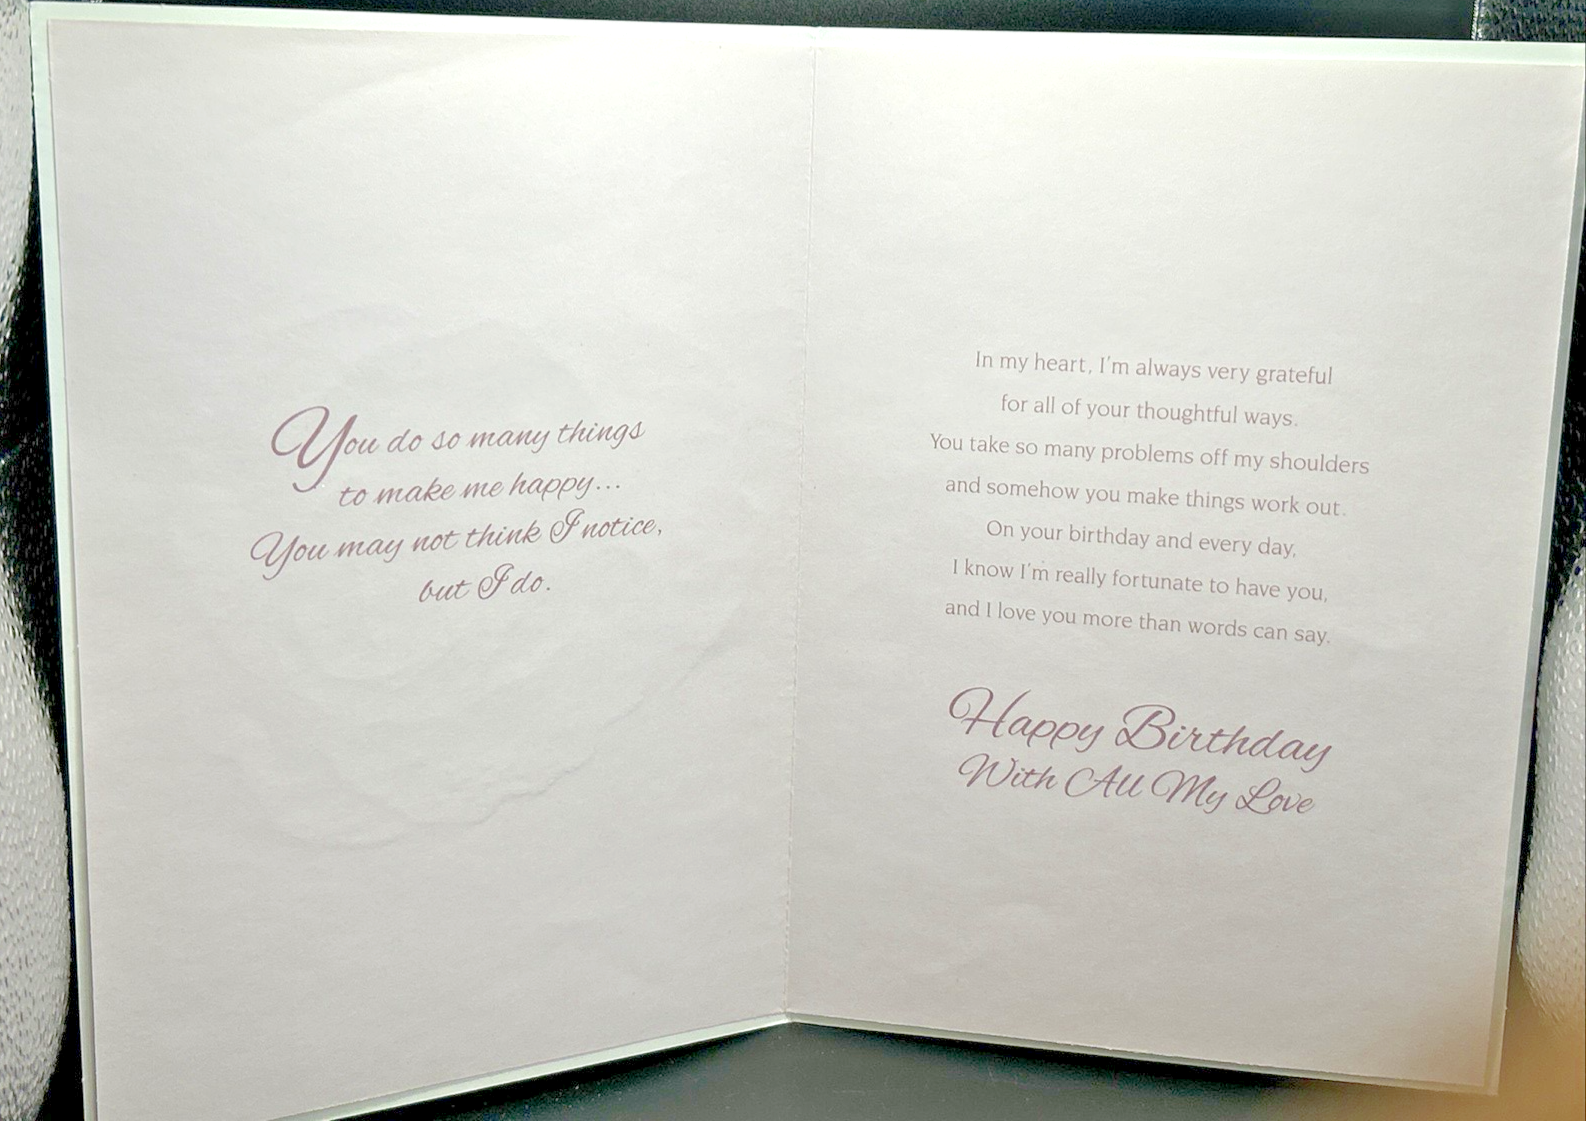 You do so many things
to make me happy...
You may not think I notice,
but I do.
In my heart, I'm always very grateful
for all of your thoughtful ways.
You take so many problems off my shoulders
and somehow you make things work out.
On your birthday and every day,
I know I'm really fortunate to have you,
and I love you more than words can say.
Happy Birthday
With All My Love